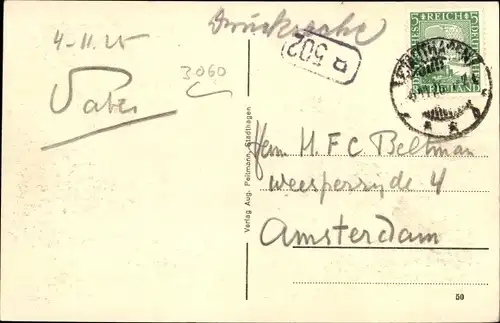 Drucksache
4-11.25
3060
R 502
5 REICH 5
DEUTSCHES
STADTHAGEN
Vater
Herrn M. F C Beltman
weesperzyde 4
Amsterdam
Verlag Aug. Pellmann, Stadthagen
50